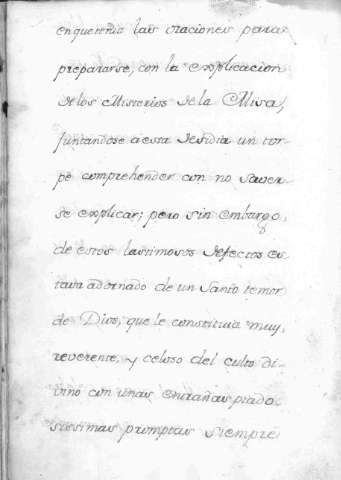 enqueriendo las oraciones para
prepararse, con la explicacion
de los Misterios de la Misa,
juntandose a esta desidia un tor-
pe comprehender con no saver-
se explicar; pero sin embargo,
de estos lastimosos defectos es-
tava adornado de un santo temor
de Dios, que le constituia muy,
reverente, y celoso del culto di-
vino con unas entrañas piado-
sissimas promptas siempre